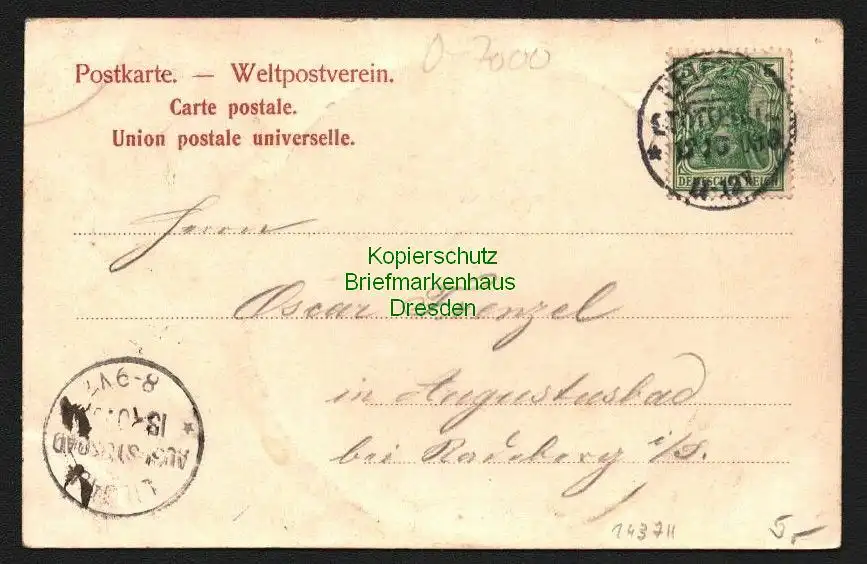 O-7000
Postkarte. — Weltpostverein.
Carte postale.
Union postale universelle.
DEUTSCHES REICH
11-12V
Herrn
Kopierschutz
Briefmarkenhaus
Dresden
Oscar Frenzel
in Augustusbad
bei Radeberg i/S.
8-9V
AUGUSTUSBAD
14371
5,-